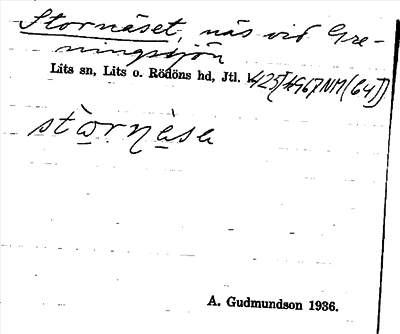 Stornäset, näs vid Gre-
ningssjön
Lits sn, Lits o. Rödöns hd, Jtl.
stòrnèsa
A. Gudmundson 1936.